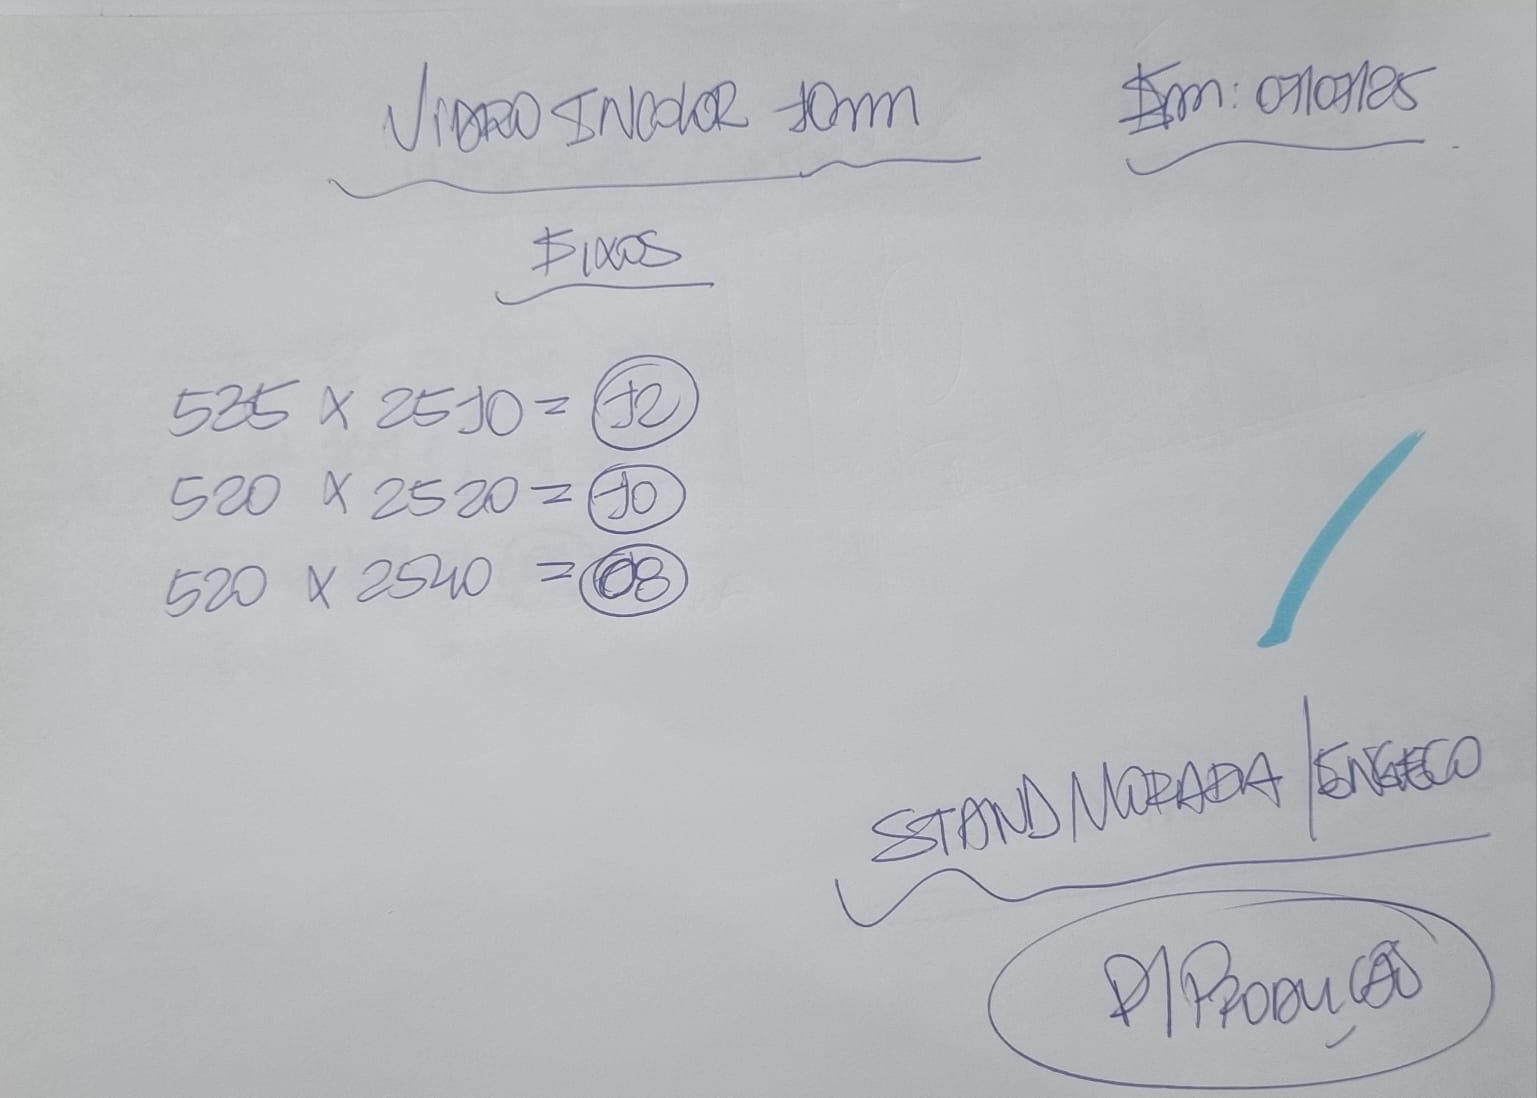 VIDRO INCOLOR 10mm
Em: 07/07/25
FIXOS
525 x 2510 = 12
520 x 2520 = 10
520 x 2540 = 08
STAND MORADA / ENGECO
P/ PRODUÇÃO